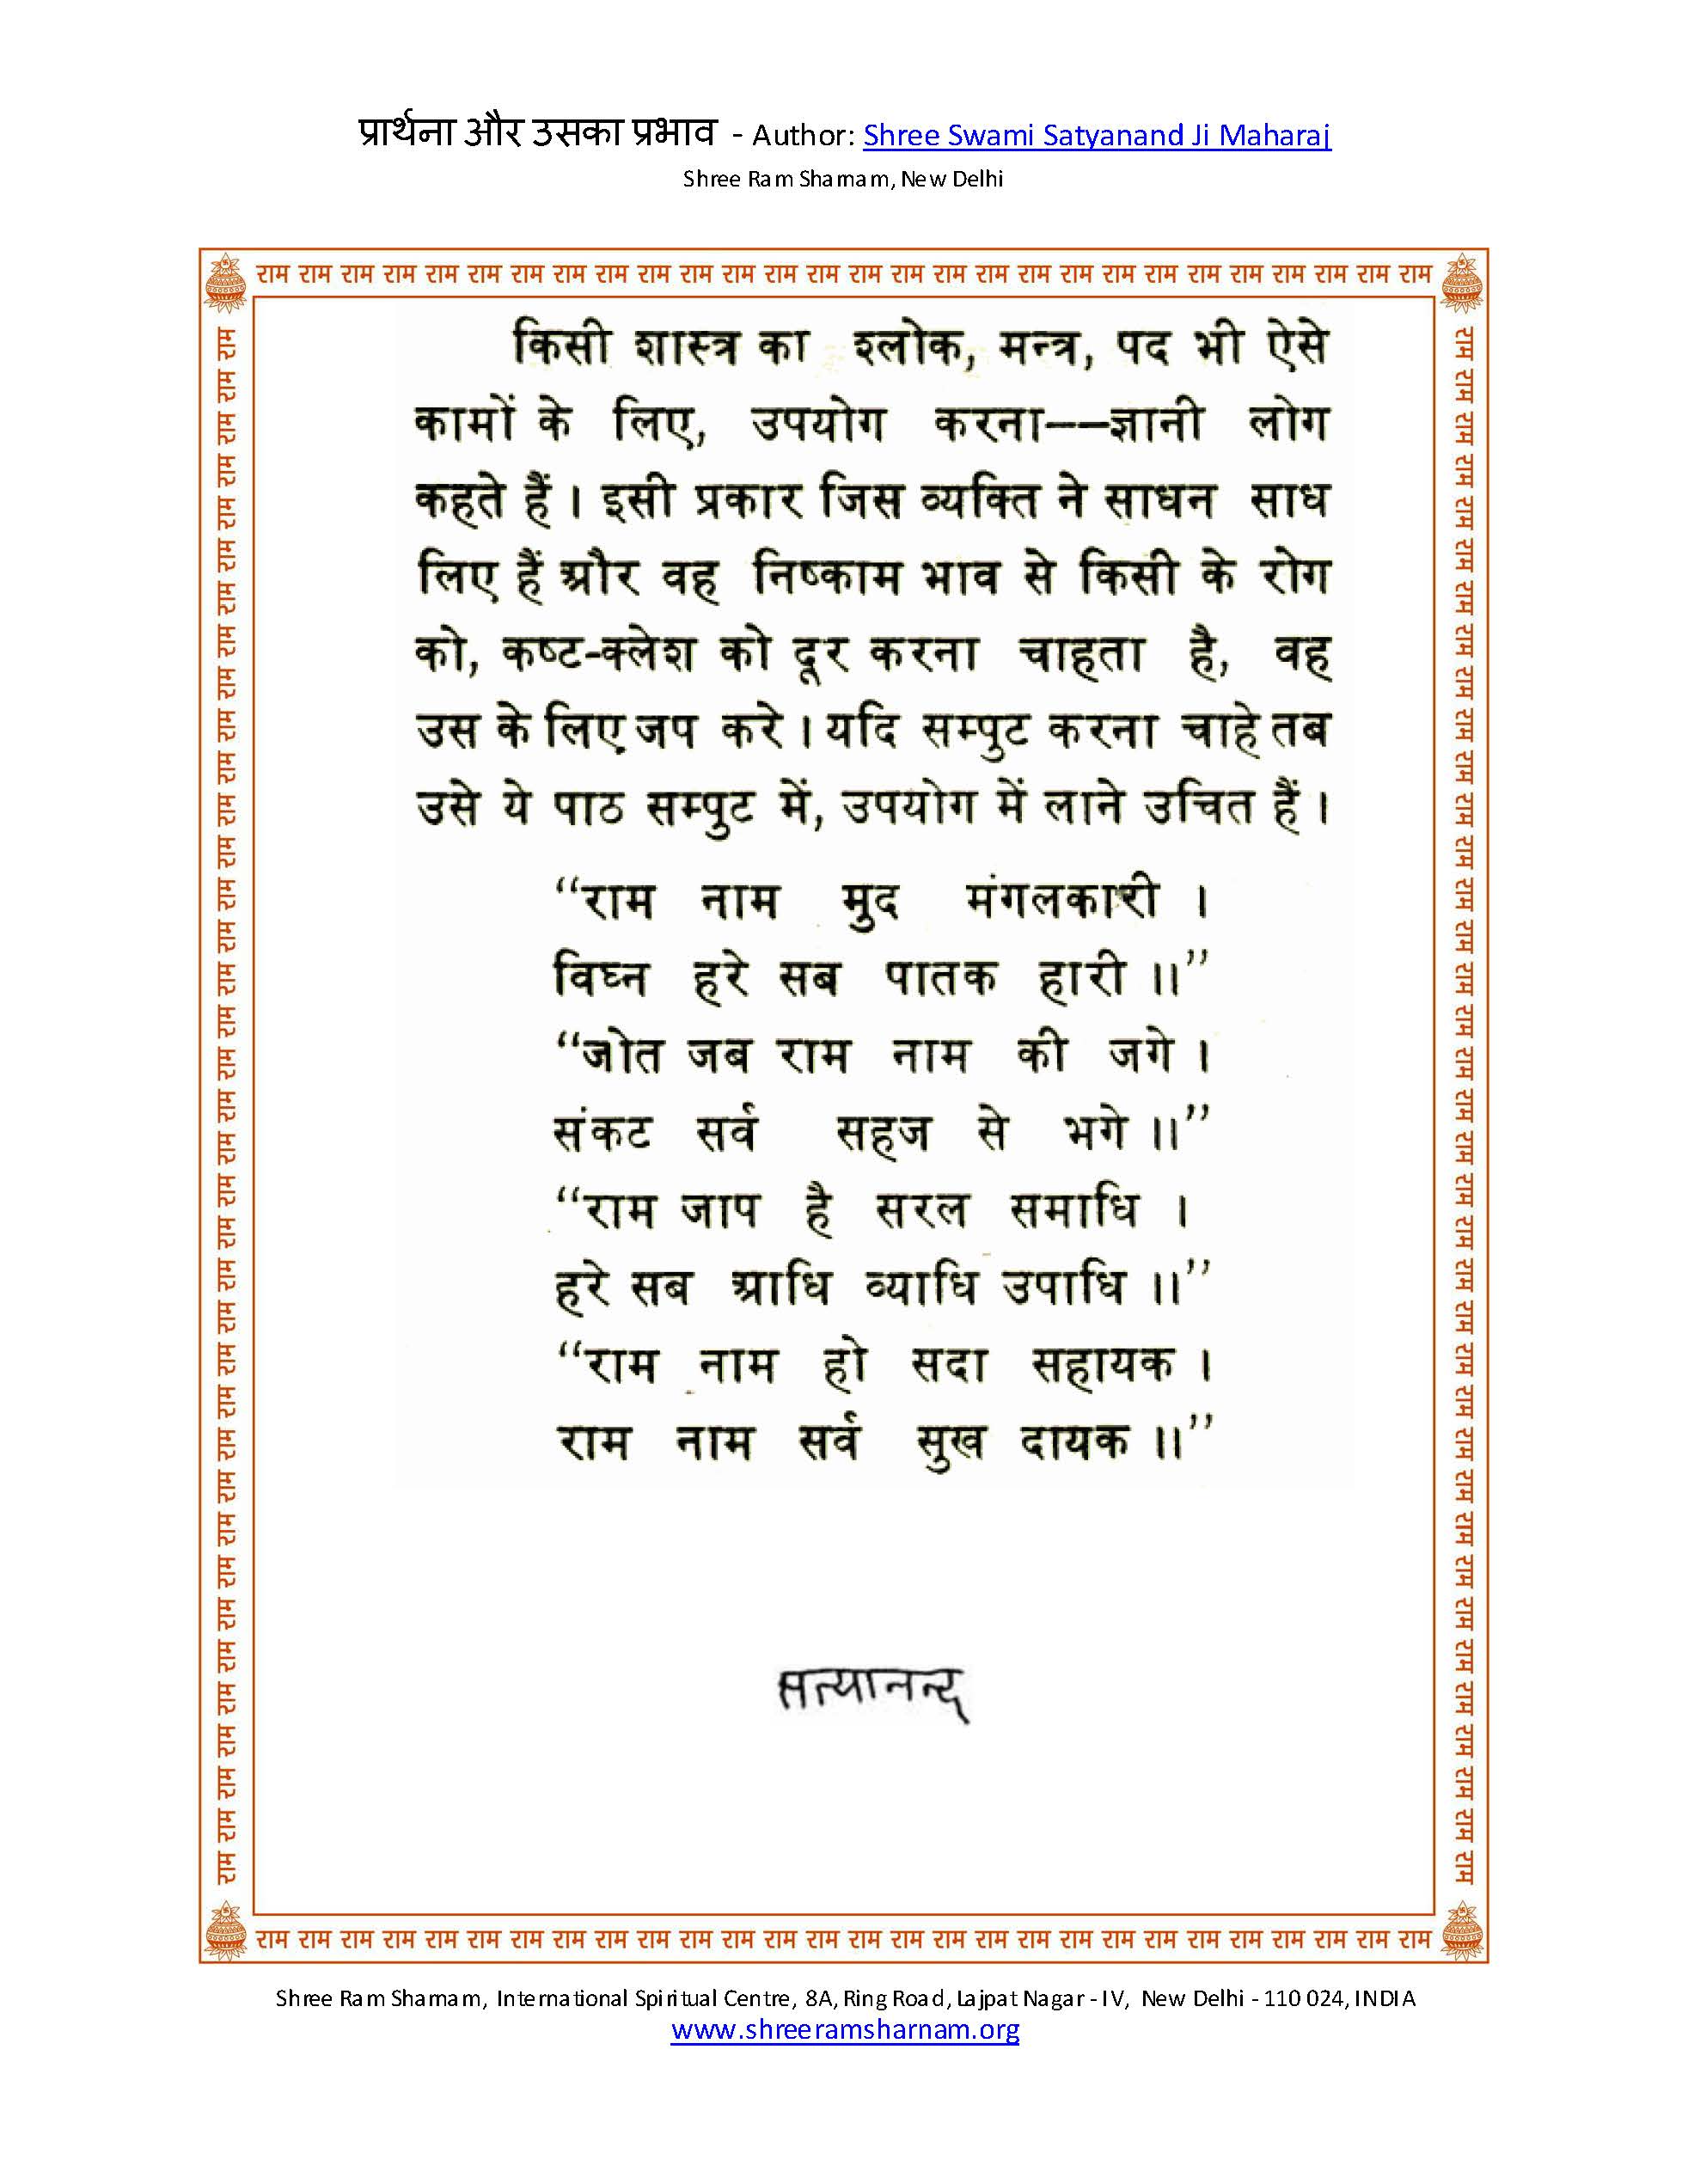 प्रार्थना और उसका प्रभाव - Author: Shree Swami Satyanand Ji Maharaj
Shree Ram Sharnam, New Delhi
राम राम राम राम राम राम राम राम राम राम राम राम राम राम राम राम राम राम राम राम राम राम राम राम राम राम राम राम
किसी शास्त्र का श्लोक, मन्त्र, पद भी ऐसे
कामों के लिए, उपयोग करना--ज्ञानी लोग
कहते हैं । इसी प्रकार जिस व्यक्ति ने साधन साध
लिए हैं और वह निष्काम भाव से किसी के रोग
को, कष्ट-क्लेश को दूर करना चाहता है, वह
उस के लिए जप करे । यदि सम्पुट करना चाहे तब
उसे ये पाठ सम्पुट में, उपयोग में लाने उचित हैं ।
“राम नाम मुद मंगलकारी ।
विघ्न हरे सब पातक हारी ॥”
“जोत जब राम नाम की जगे ।
संकट सर्व सहज से भगे ॥”
“राम जाप है सरल समाधि ।
हरे सब आधि व्याधि उपाधि ॥”
“राम नाम हो सदा सहायक ।
राम नाम सर्व सुख दायक ॥”
सत्यानन्द
राम राम राम राम राम राम राम राम राम राम राम राम राम राम राम राम राम राम राम राम राम राम राम राम राम राम राम राम
राम राम राम राम राम राम राम राम राम राम राम राम राम राम राम राम राम राम राम राम राम राम राम राम राम राम राम राम राम राम राम राम राम राम राम राम राम
राम राम राम राम राम राम राम राम राम राम राम राम राम राम राम राम राम राम राम राम राम राम राम राम राम राम राम राम राम राम राम राम राम राम राम राम राम
Shree Ram Sharnam, International Spiritual Centre, 8A, Ring Road, Lajpat Nagar - IV, New Delhi - 110 024, INDIA
www.shreeramsharnam.org